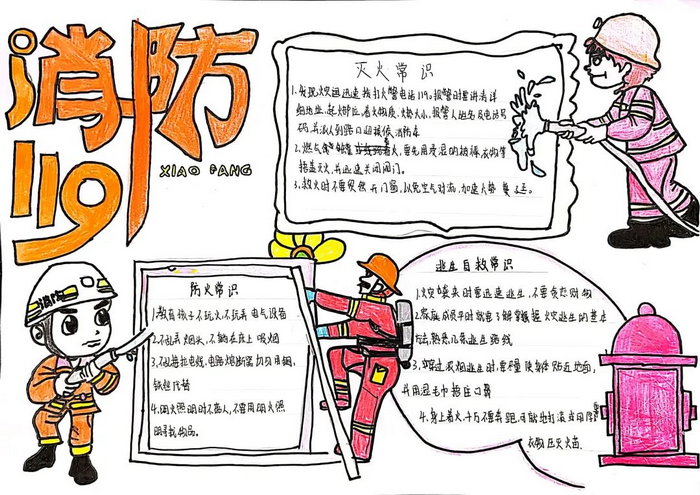 消防
119
XIAO FANG
灭火常识
1.发现火灾迅速拨打火警电话119。报警时要讲清详
细地址、起火部位、着火物质、火势大小、报警人姓名及电话号
码,并派人到路口迎接消防车
2.燃气 着火,要先用浸湿的被褥、衣物等
捂盖灭火,并迅速关闭阀门。
3.救火时不要贸然开门窗,以免空气对流,加速火势蔓延。
消防
防火常识
1.教育孩子不玩火,不玩弄电气设备
2.不乱丢烟头,不躺在床上吸烟
3.不乱接拉电线,电路熔断器切勿用铜、
铁丝代替
4.明火照明时不离人,不要用明火照
明寻找物品。
逃生自救常识
1.火灾袭来时要迅速逃生,不要贪恋财物
2.家庭成员平时就要了解掌握火灾逃生的基本
方法,熟悉几条逃生路线
3.穿过浓烟逃生时,要尽量使身体贴近地面,
并用湿毛巾捂住口鼻
4.身上着火,千万不要奔跑,可就地打滚或用厚
衣物压灭火苗